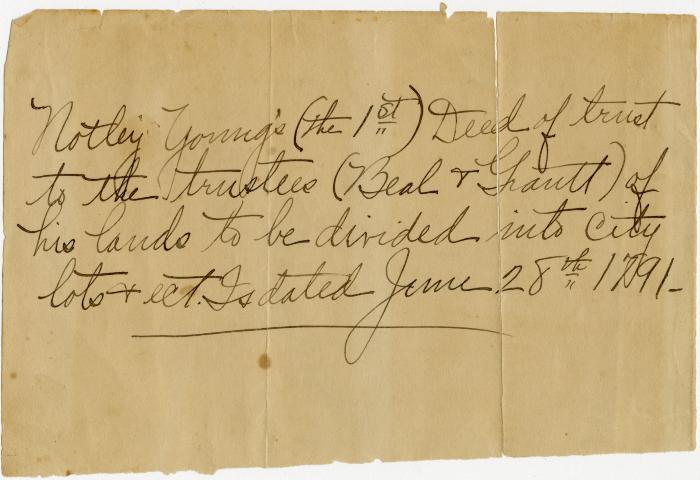 Notley Young's (the 1st) Deed of trust
to the trustees (Beal & Ghantt) of
his lands to be divided into city
lots & ect. Is dated June 28th 1791_